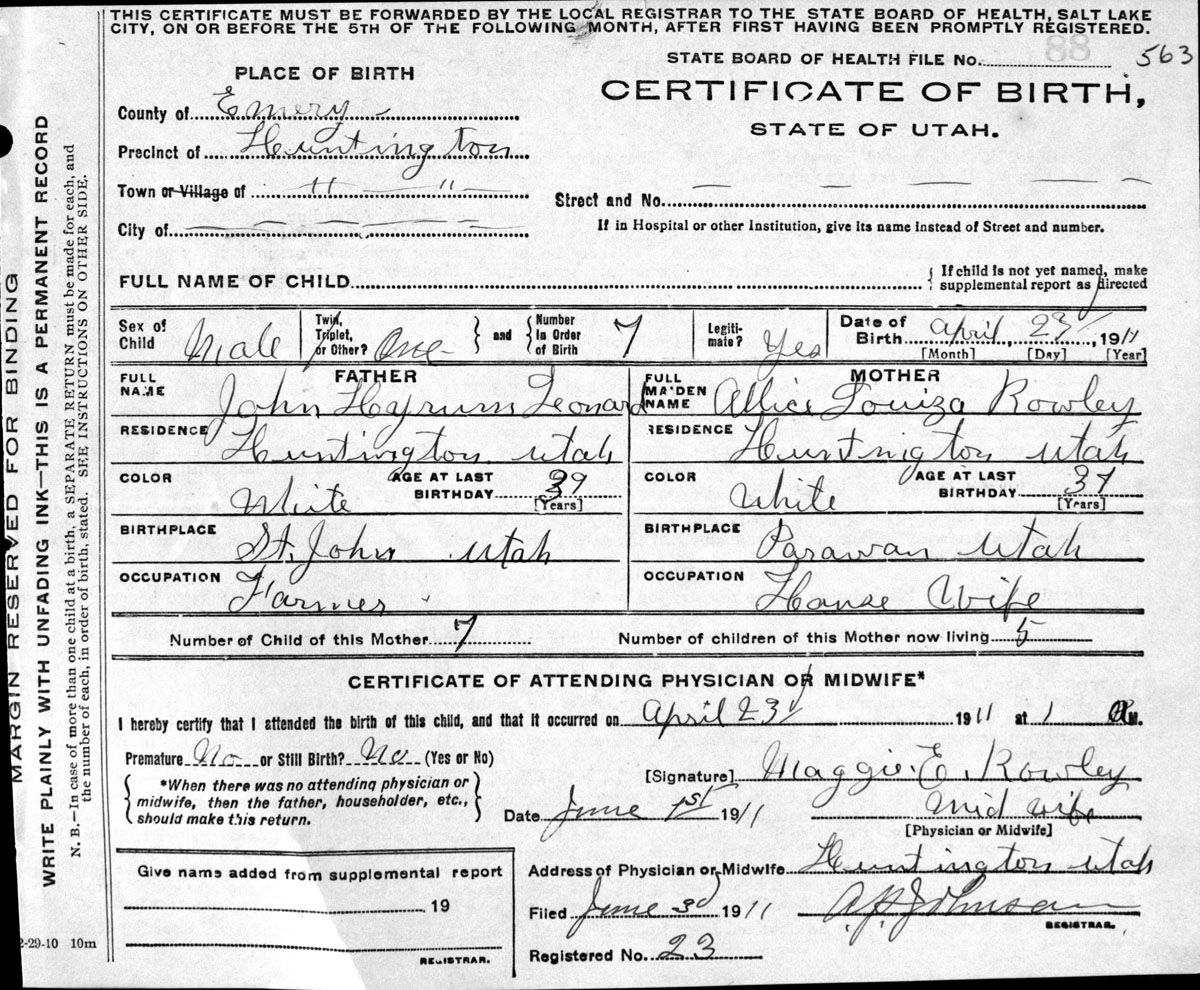 THIS CERTIFICATE MUST BE FORWARDED BY THE LOCAL REGISTRAR TO THE STATE BOARD OF HEALTH, SALT LAKE
CITY, ON OR BEFORE THE 5TH OF THE FOLLOWING MONTH, AFTER FIRST HAVING BEEN PROMPTLY REGISTERED.
88
STATE BOARD OF HEALTH FILE No. 563
PLACE OF BIRTH
CERTIFICATE OF BIRTH,
STATE OF UTAH.
County of Emery
Precinct of Huntington
Town or Village of " "
Street and No.
City of
If in Hospital or other Institution, give its name instead of Street and number.
FULL NAME OF CHILD { If child is not yet named, make
supplemental report as directed
Sex of Child Male Twin, Triplet, or Other? One } and { Number in Order of Birth 7 Legitimate? Yes Date of Birth April, 23, 1911
[Month] [Day] [Year]
FATHER MOTHER
FULL NAME John Hyrum Leonard FULL MAIDEN NAME Allice Louiza Rowley
RESIDENCE Huntington Utah RESIDENCE Huntington Utah
COLOR White AGE AT LAST BIRTHDAY 39 [Years] COLOR White AGE AT LAST BIRTHDAY 37 [Years]
BIRTHPLACE St. John Utah BIRTHPLACE Parawan Utah
OCCUPATION Farmer OCCUPATION House Wife
Number of Child of this Mother 7 Number of children of this Mother now living 5
CERTIFICATE OF ATTENDING PHYSICIAN OR MIDWIFE*
I hereby certify that I attended the birth of this child, and that it occurred on April 23 1911 at 1 A M.
Premature No or Still Birth? No (Yes or No)
[Signature] Maggie E. Rowley
{ *When there was no attending physician or
midwife, then the father, householder, etc.,
should make this return. }
Date June 1st 1911 Mid wife
[Physician or Midwife]
Give name added from supplemental report
19
REGISTRAR.
Address of Physician or Midwife Huntington Utah
Filed June 3d 1911 Johnson
REGISTRAR.
Registered No. 23
2-29-10 10m
MARGIN RESERVED FOR BINDING
WRITE PLAINLY WITH UNFADING INK—THIS IS A PERMANENT RECORD
N. B.—In case of more than one child at a birth, a SEPARATE RETURN must be made for each, and
the number of each, in order of birth, stated. SEE INSTRUCTIONS ON OTHER SIDE.